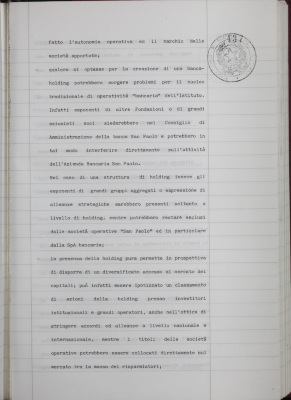 fatto l'autonomia operativa ed il marchio delle
società apportate;
qualora si optasse per la creazione di una banca-
holding potrebbero sorgere problemi per il nucleo
tradizionale di operatività "bancaria" dell'Istituto.
Infatti esponenti di altre fondazioni o di grandi
azionisti soci siederebbero nel Consiglio di
Amministrazione della banca San Paolo e potrebbero in
tal modo interferire direttamente sull'attività
dell'Azienda Bancaria San Paolo.
Nel caso di una struttura di holding invece gli
esponenti di grandi gruppi aggregati o espressione di
alleanze strategiche sarebbero presenti soltanto a
livello di holding, mentre potrebbero restare esclusi
dalle società operative "San Paolo" ed in particolare
dalla SpA bancaria;
la presenza della holding pura permette in prospettiva
di disporre di un diversificato accesso al mercato dei
capitali; può infatti essere ipotizzato un classamento
di azioni della holding presso investitori
istituzionali e grandi operatori, anche nell'ottica di
stringere accordi ed alleanze a livello nazionale e
internazionale, mentre i titoli delle società
operative potrebbero essere collocati direttamente sul
mercato tra la massa dei risparmiatori;